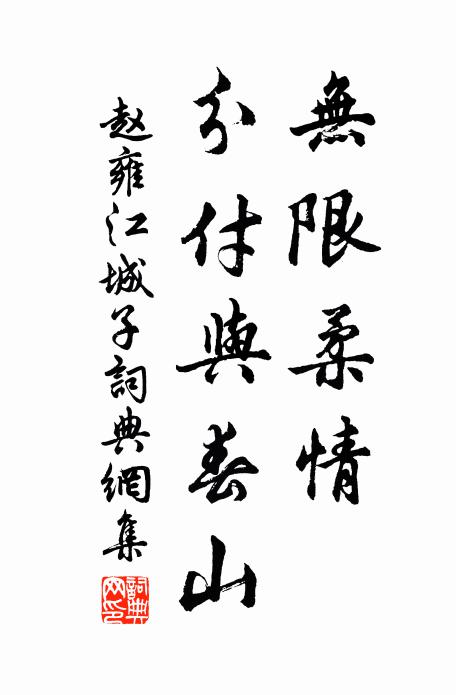 無限柔情
分付與春山
赵雍江城子詞典網集
詞典网印